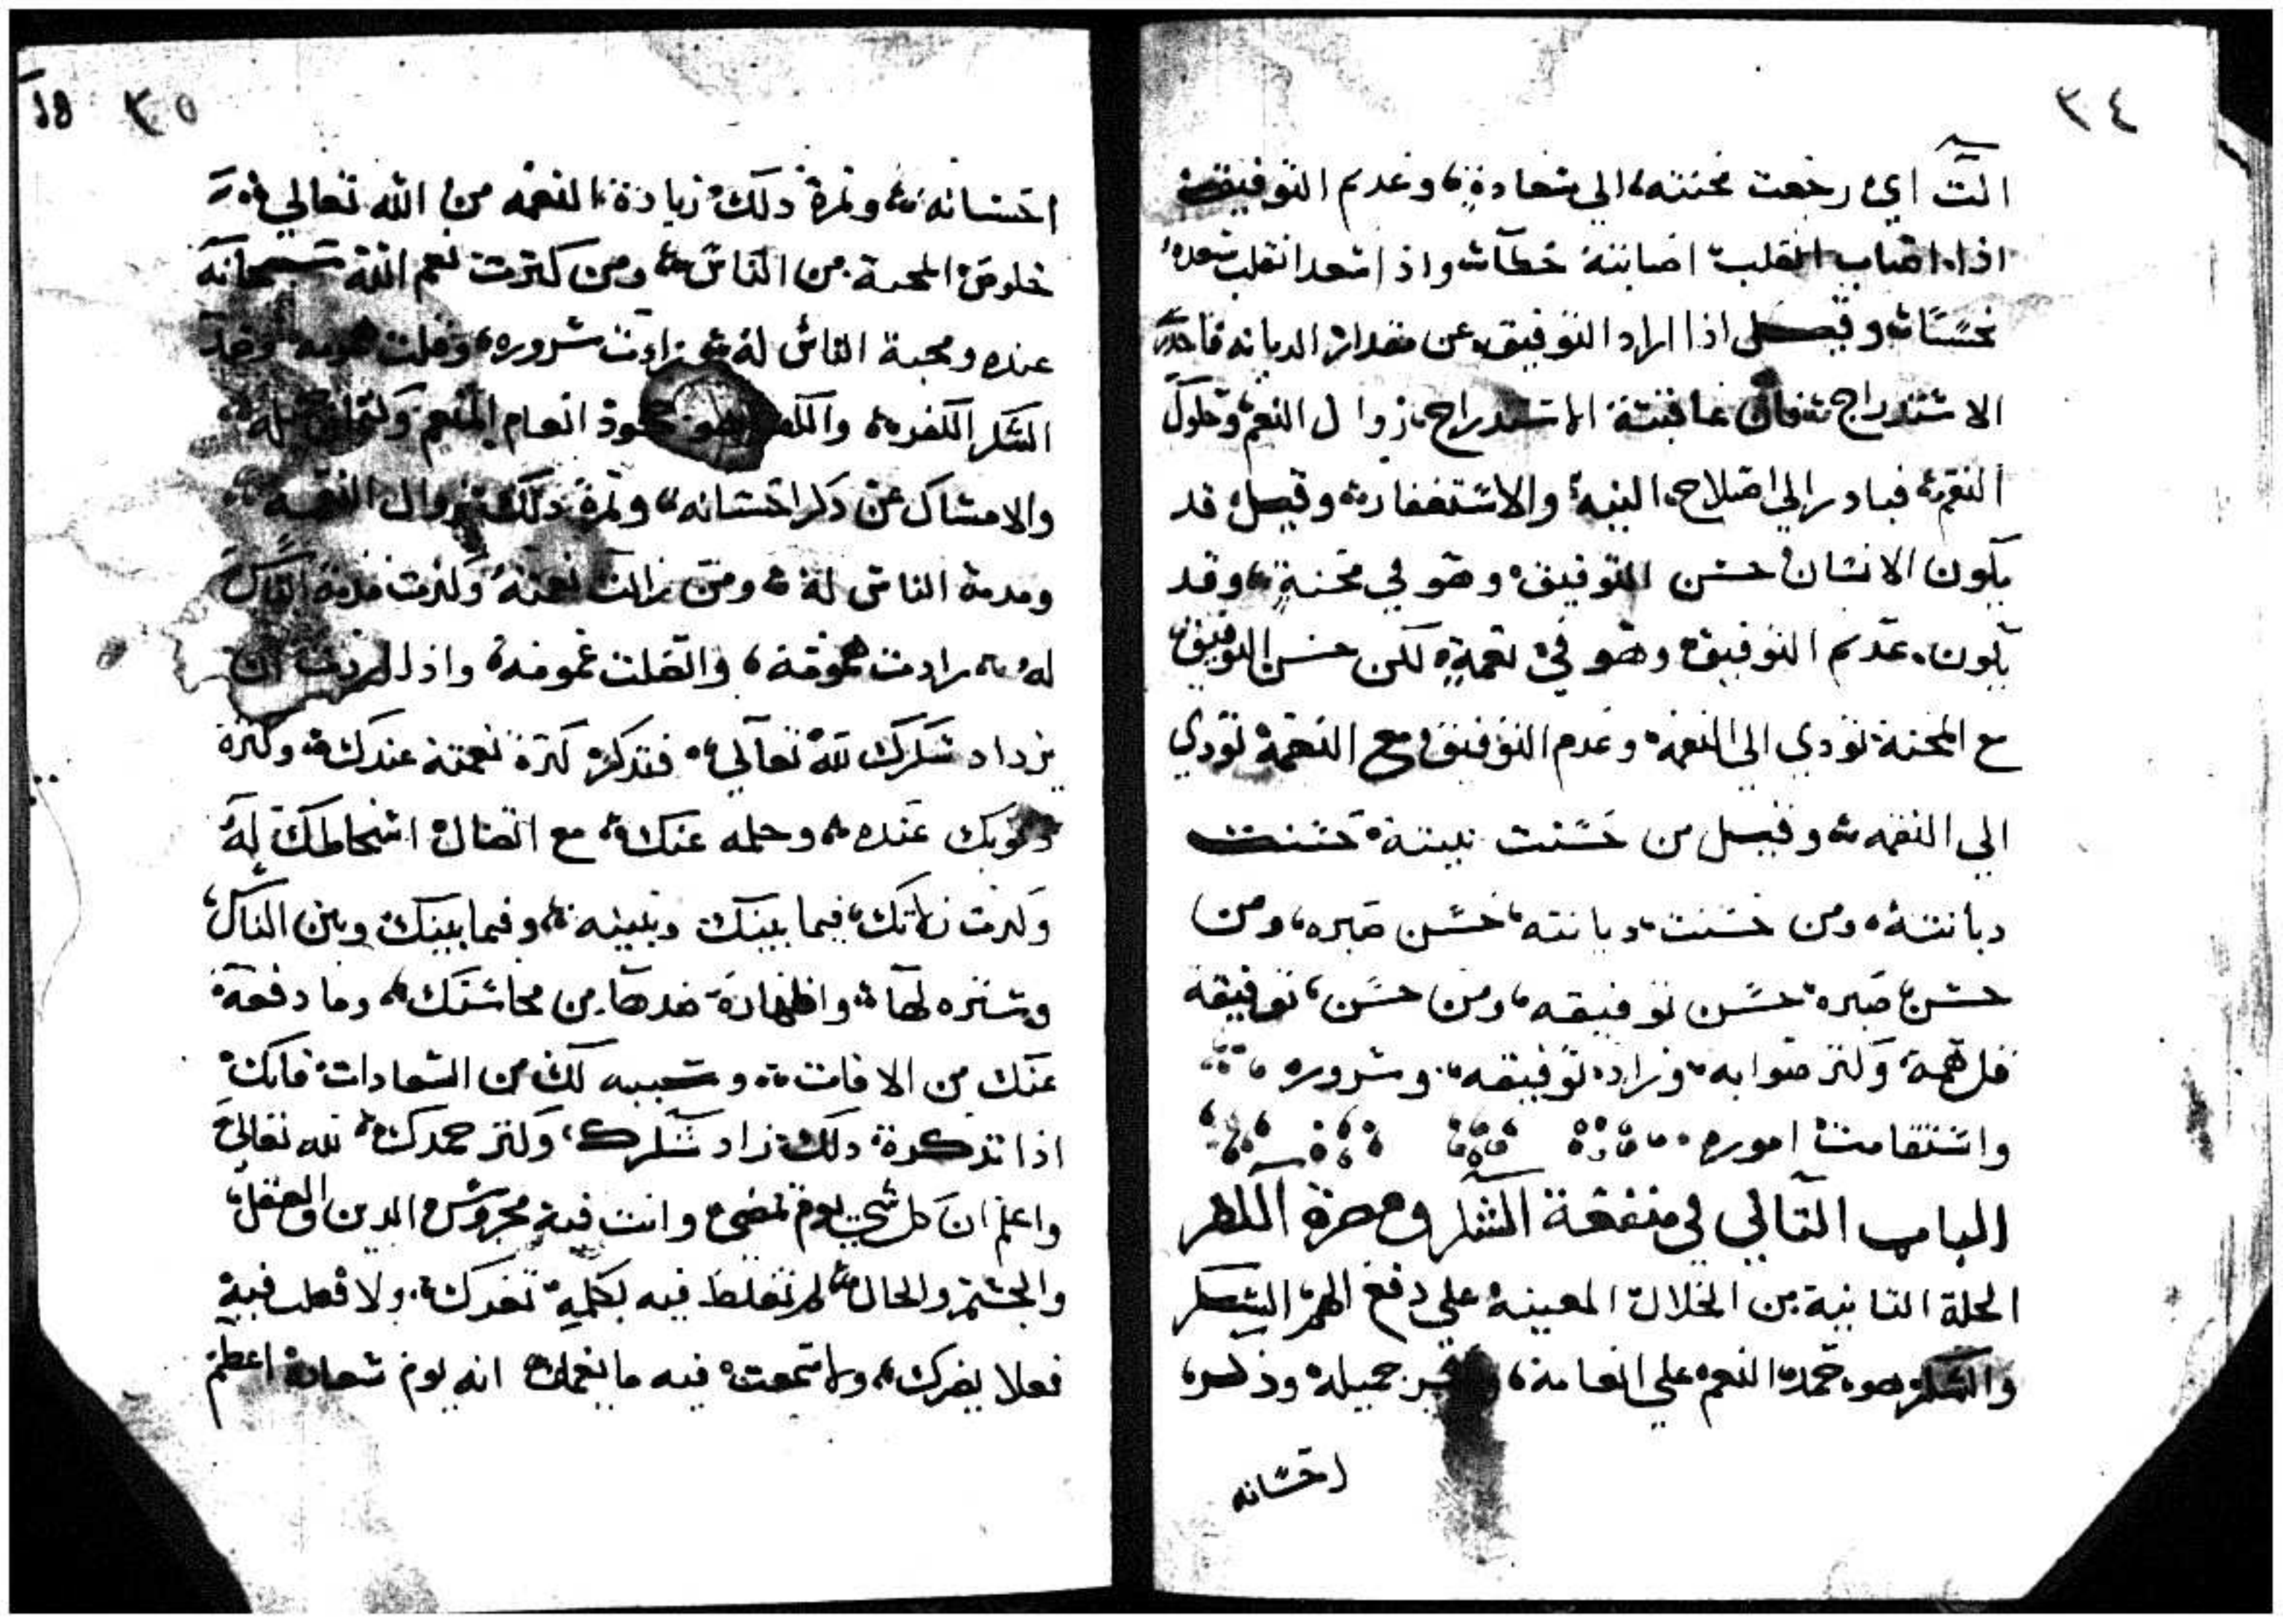 ٣٤
الت اي رجعت محنته الي سعادة وعدم التوفيق
اذا اصاب انقلبت اصابته خطآ واذا سعد انقلب سعده
نحسًا وقيل اذا زاد التوفيق عن مقدار الديانه فاحذر
الاستدراج فان عاقبتة الاستدراج زوال النعم وحلول
النقم فبادر الي اصلاح النية والاستغفار وقيل قد
يكون الانسان حسن التوفيق وهو في محنة وقد
يكون عديم التوفيق وهو في نعمة لكن حسن التوفيق
مع المحنة تودي الى النعمة وعدم التوفيق مع النعمة تودي
الي النقمه وقيل من حسنت نيته حسنت
ديانته ومن حسنت ديانته حسن صبره ومن
حسن صبره حسن توفيقه ومن حسن توفيقه
قل همه وكثر صوابه وزاد توفيقه وسروره
واستقامت اموره
الباب الثاني في منفعة الشكر ومضرة الكفر
الخلة الثانية من الخلال المعينة علي دفع الهم الشكر
والشكر هو حمد المنعم علي انعامه جميله وذكر
احسانه
٣٥
احسانه وثمرة ذلك زيادة النعمه من الله تعالي و
خلوص المحبة من الناس ومن كثرت نعم الله سبحانه
عنده ومحبة الناس له زادت سروره وقلت همومه وضد
الشكر الكفر والكفر هو جحود انعام المنعم وكتمان
والامساك عن ذكر احسانه وثمرة ذلك زوال النعمه
ومذمة الناس له ومن زالت نعمته وكثرت مذمة الناس
له زادت همومه واتصلت غمومه واذا اردت ان
يزداد شكرك لله تعالي فتذكر كثرة نعمته عندك وكثرة
ذنوبك عنده وحلمه عنك مع اتصال اسخاطك له
وكثرت زلاتك فيما بينك وبينه وفيما بينك وبين الناس
وستره لها واظهاره ضدها من محاسنك وما دفعه
عنك من الافات وسببه لك من السعادات فانك
اذا تذكرة ذلك زاد شكرك وكثر حمدك لله تعالي
واعلم ان كل يوم تمضي وانت فيه محروس الدين والعقل
والجسم والحال لم تغلط فيه بكلمة ولا فعلت فيه
فعلا يضرك ولا سمعت فيه ما يغمك انه يوم سعادة اعظم